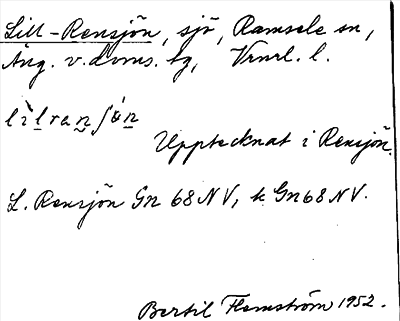 Lill-Rensjön, sjö, Ramsele sn,
Ång. v. doms. tg, Vrnrl. l.
lìlranʃön
Upptecknat i Rensjön.
L. Rensjön Gn 68 NV, k Gn 68 NV.
Bertil Flemström 1952.